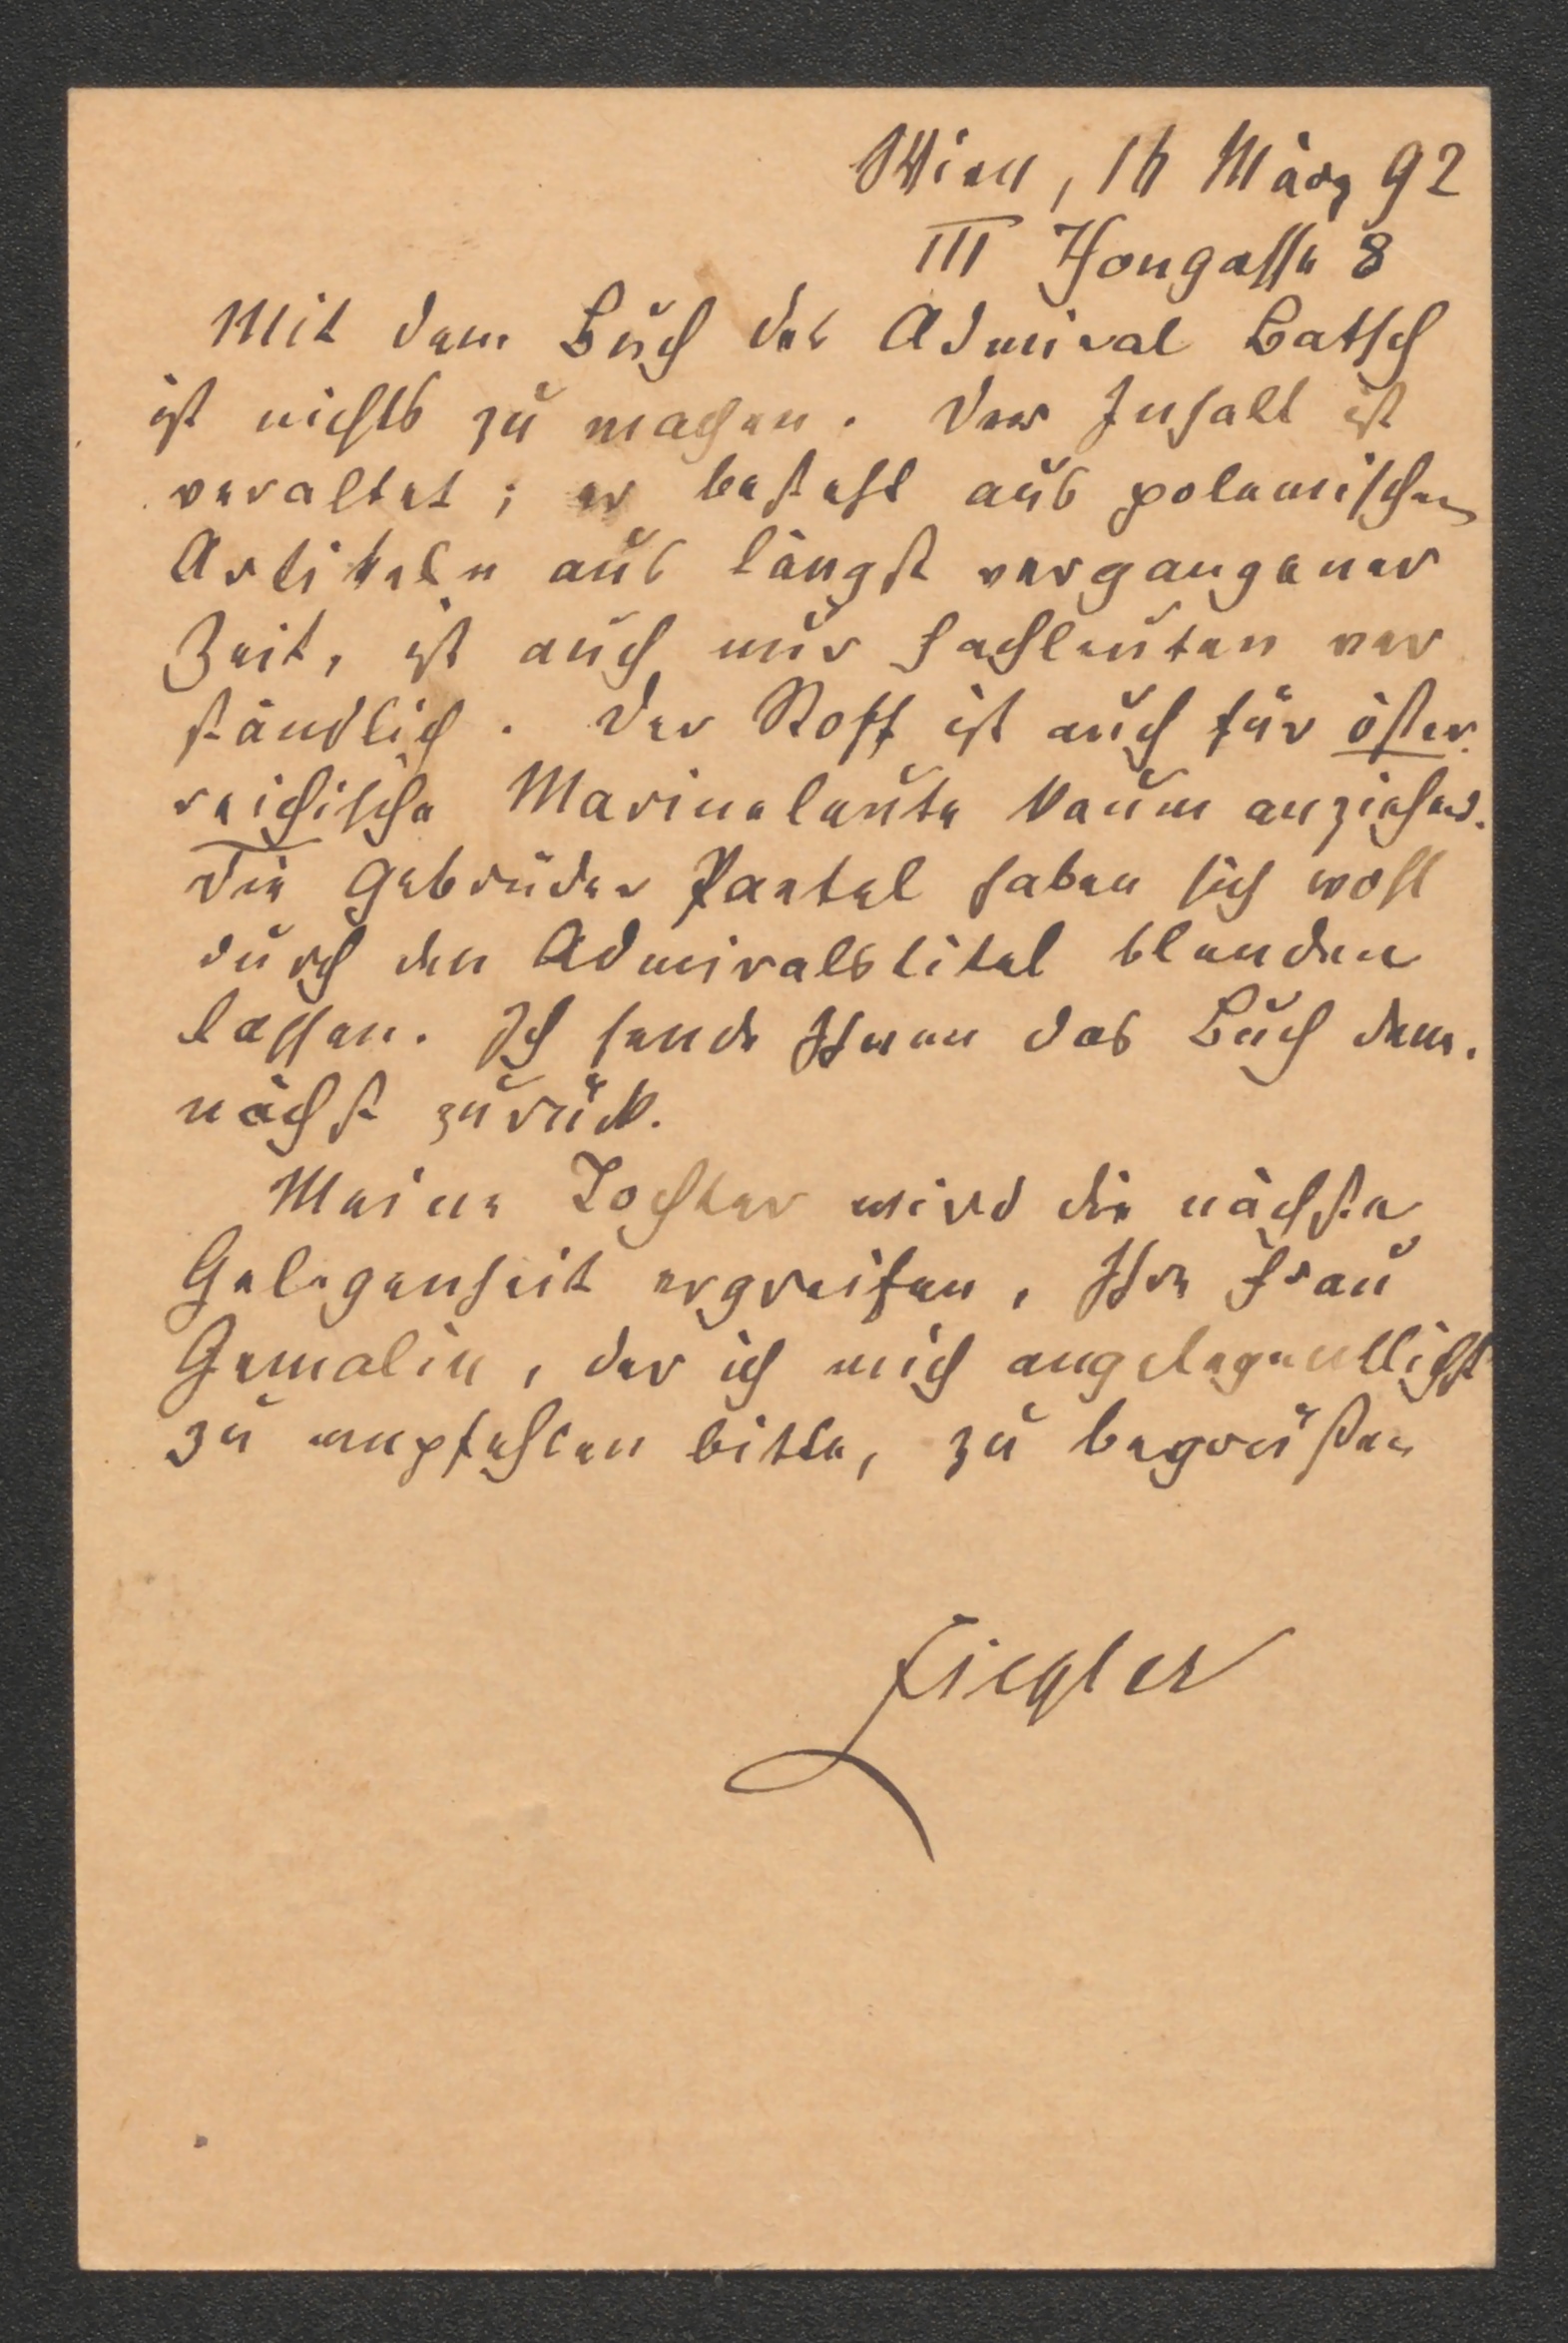 Wien, 16 März 92
III Hongasse 8
Mit dem Buch des Admiral Batsch
ist nichts zu machen. Der Inhalt ist
veraltet; er besteht aus polemischen
Artikeln aus längst vergangener
Zeit, ist auch nur Fachleuten ver
ständlich. Der Stoff ist auch für öster-
reichische Marineleute kaum anziehend.
Die Gebrüder Paetel haben sich wohl
durch den Admiralstitel blenden
lassen. Ich sende Ihnen das Buch dem-
nächst zurück.
Meine Tochter wird die nächste
Gelegenheit ergreifen, Ihre Frau
Gemalin, der ich mich angelegentlichst
zu empfehlen bitte, zu begrüßen
Ziegler